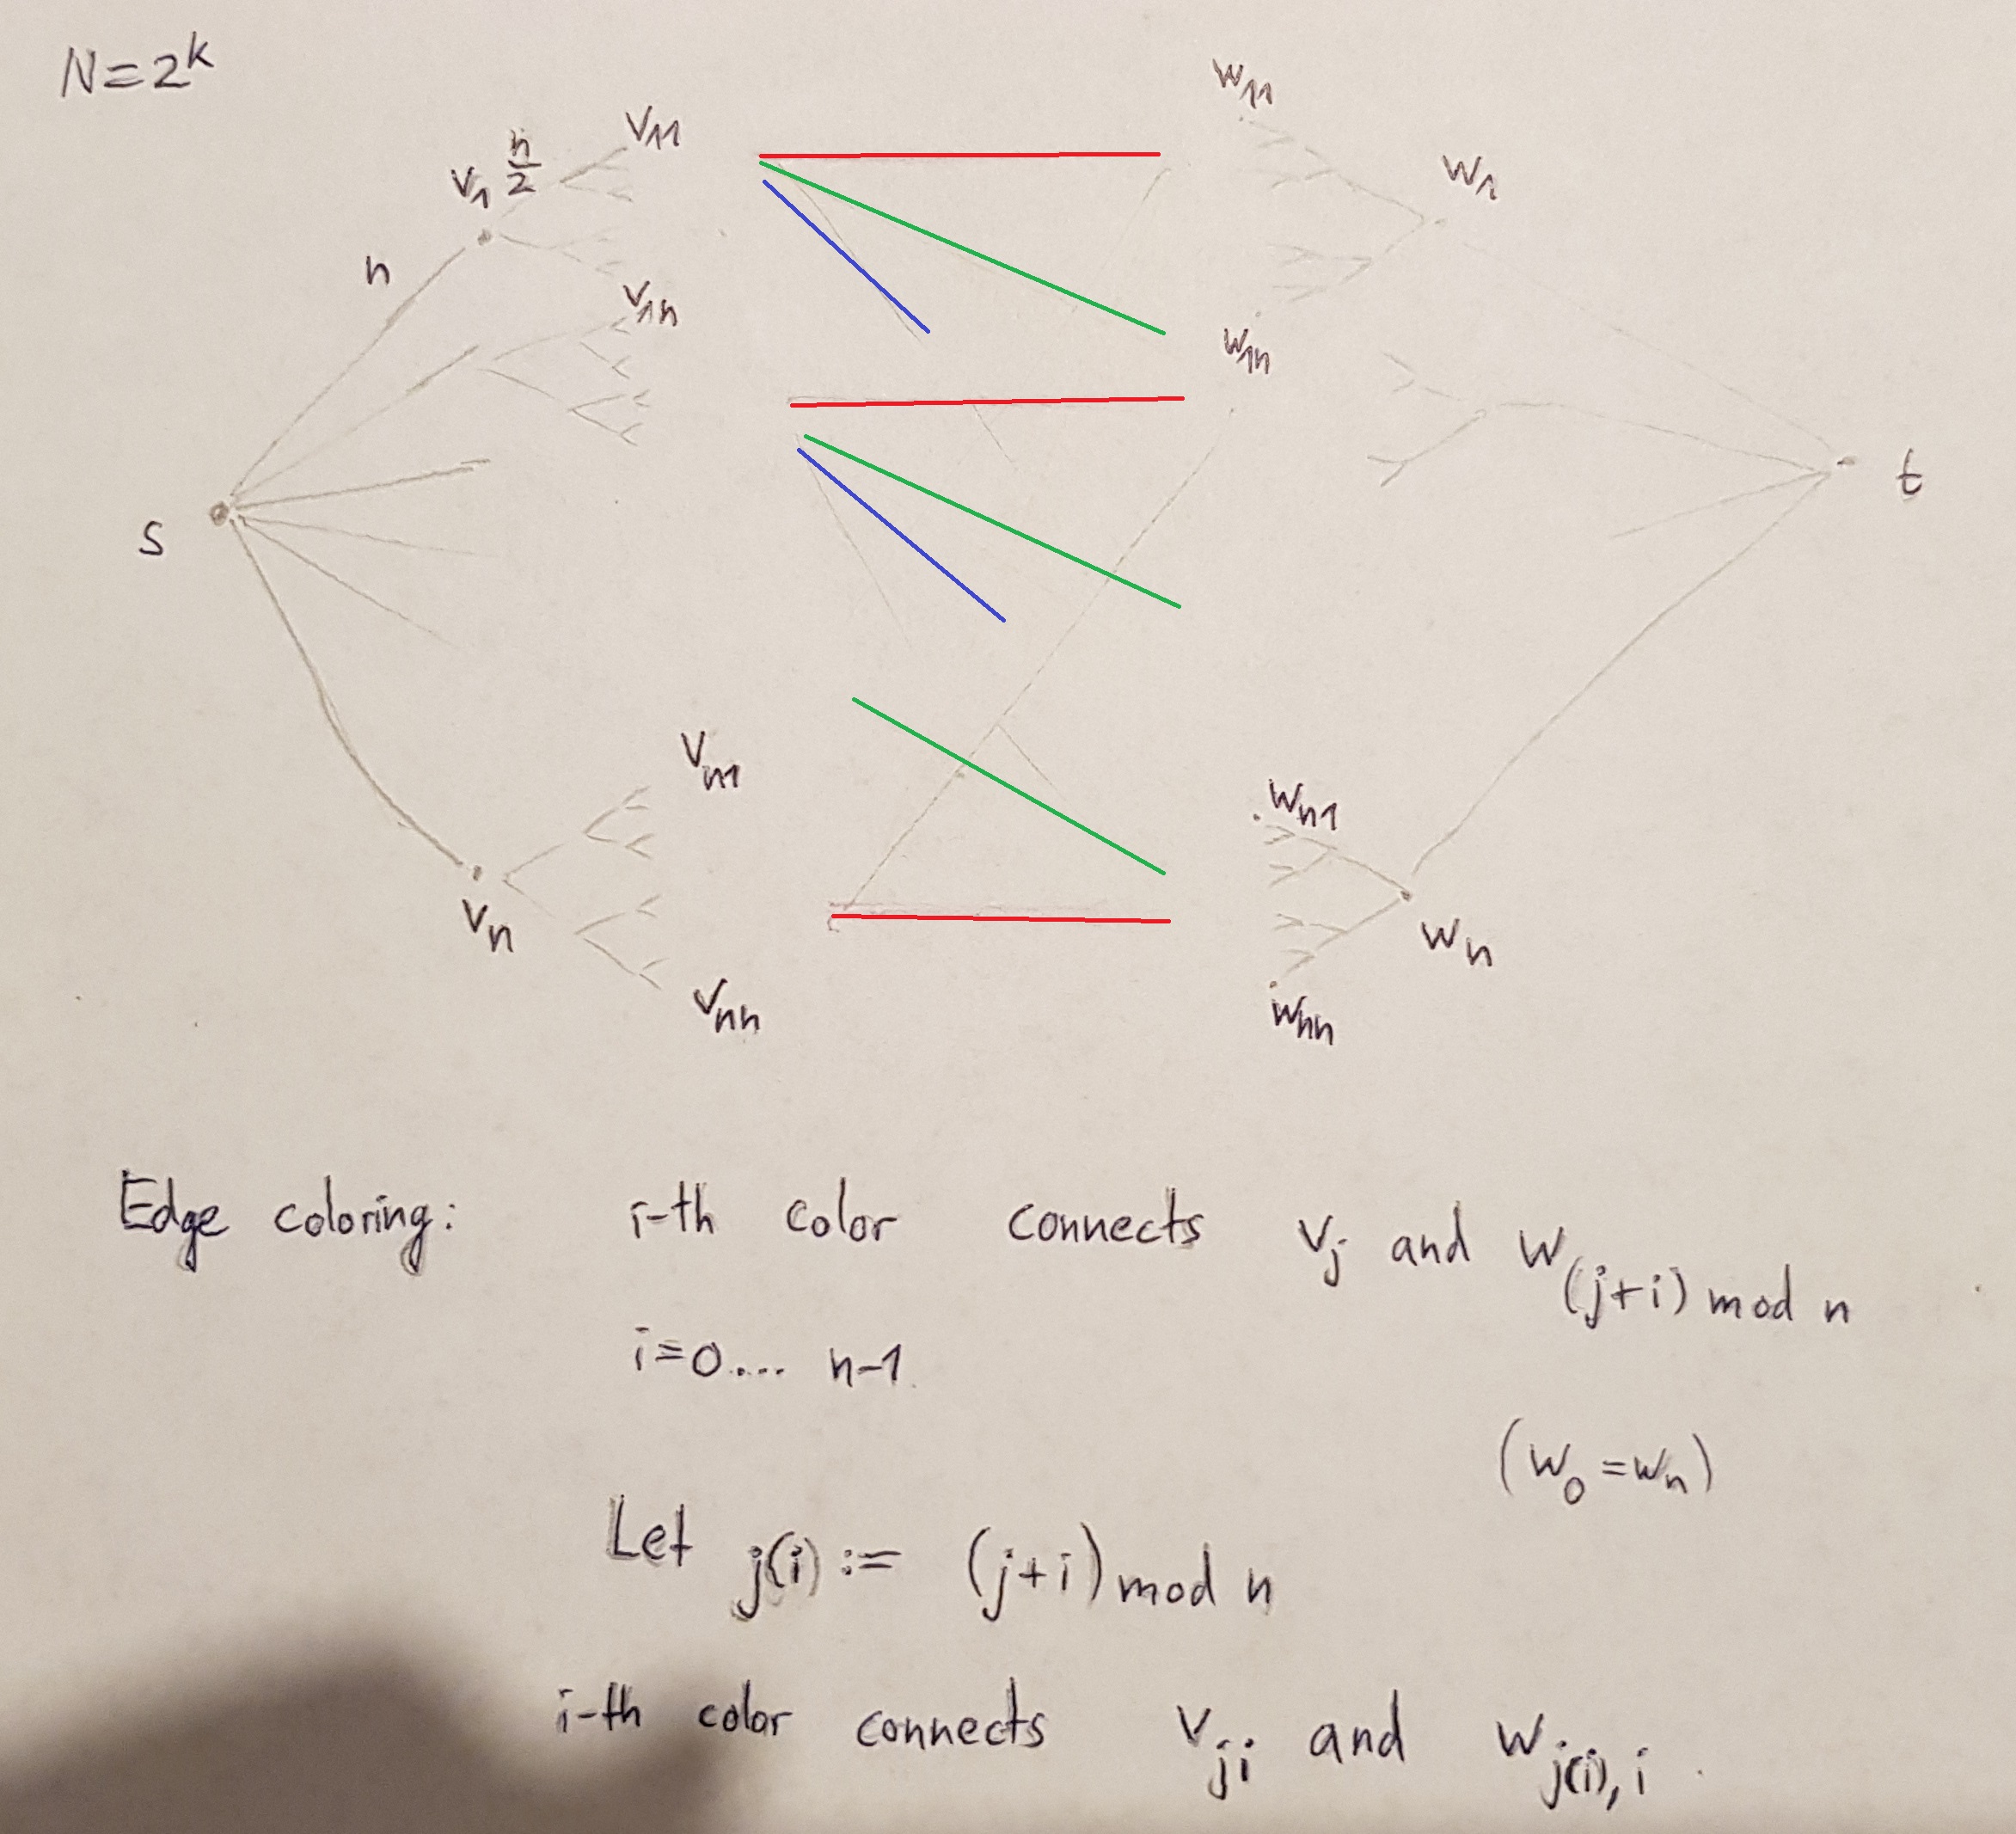 N=2^k
v_11
w_11
v_1 n/2
w_1
n
v_1n
w_1n
s
t
v_n1
w_n1
v_n
w_n
v_nn
w_nn
Edge coloring: i-th color connects v_j and w_(j+i) mod n
i=0.... n-1
(w_0=w_n)
Let j(i) := (j+i) mod n
i-th color connects v_ji and w_j(i),i .